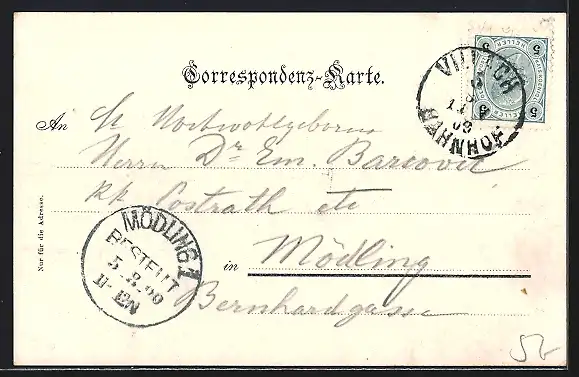 Correspondenz-Karte.
An Sr Hochwohlgeboren
Herrn Dr Em. Barcovic
kk Postrath etc
in Mödling
Bernhardgasse
Nur für die Adresse.
VILLACH
BAHNHOF
5 HELLER 5
5 5
MÖDLING 1
BESTELLT
5